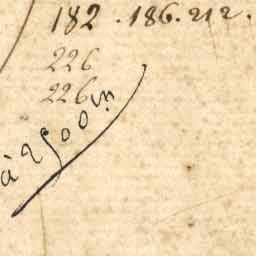 182 . 186. 212.
226
226
à 2500 m